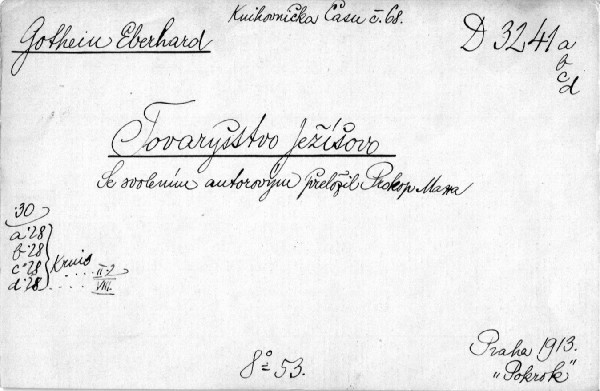 Knihovnička Času č. 68.
Gothein Eberhard
D 3241 a
b
c
d
Tovaryšstvo Ježíšovo
Se svolením autorovým přeložil Prokop Maxa
:30
a:28
b:28
c:28
d:28
II-2
VIII.
8° 53.
Praha 1913.
„Pokrok"